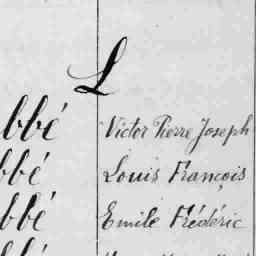 L
bbé Victor Pierre Joseph
bbé Louis François
bbé Emile Frédéric
bbé